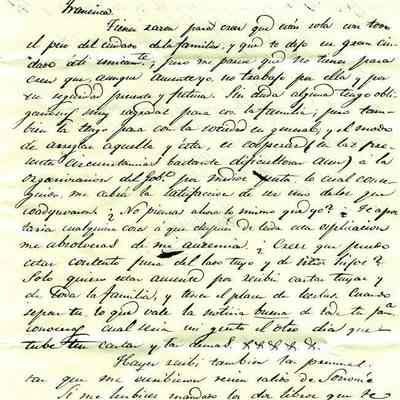 Francisca.
Tienes razon para creer que estás sola con todo
el peso del cuidado de la familia, y que te dejo en gran cui-
dado a ti unicamte; pero me parece que no tienes para
creer que, aunque ausente yo, no trabajo por ella y por
su seguridad presente y futura. Sin duda alguna tengo obli-
gaciones muy sagradas para con la familia; pero tam-
bien la tengo para con la sociedad en general; y el modo
de arreglar aquella y esta, es cooperar (en las pre-
sentes circunstancias bastante dificultosas aun) á la
organizacion del Gobo. por medios
guido, me cabria la satisfaccion de ser uno de los que
coadyuvaron. ¿No piensas ahora lo mismo que yo? ¿Te apos-
taria cualquiera cosa á que despues de toda esta esplicacion
me absolveras de mi ausencia. ¿Crees que puedo
estar contento fuera del lado tuyo y de hijos?
Solo quiero estar ausente por recibir cartas tuyas y
de toda la familia, y tener el placer de leerlas. Cuando
sepas tu, lo que vale la noticia buena de toda tu fa
convenas cual seria mi gusto el otro dia que
tube tu carta y la demas. XXXXX.
Hayer recibi tambien las primeras
tas que me escribieron recien salido de Sonora
Si me hubieras mandado los dos libros que te